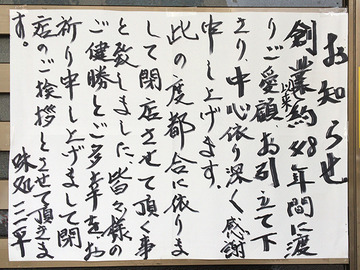 お知らせ
創業以来約48年間に渡
りご愛顧、お引立て下
さり、中心依り深く感謝
申し上げます。
此の度都合に依りま
して閉店させて頂く事
と致しました。皆々様の
ご健勝とご多幸をお
祈り申し上げまして閉
店のご挨拶とさせて頂きま
す。
味処